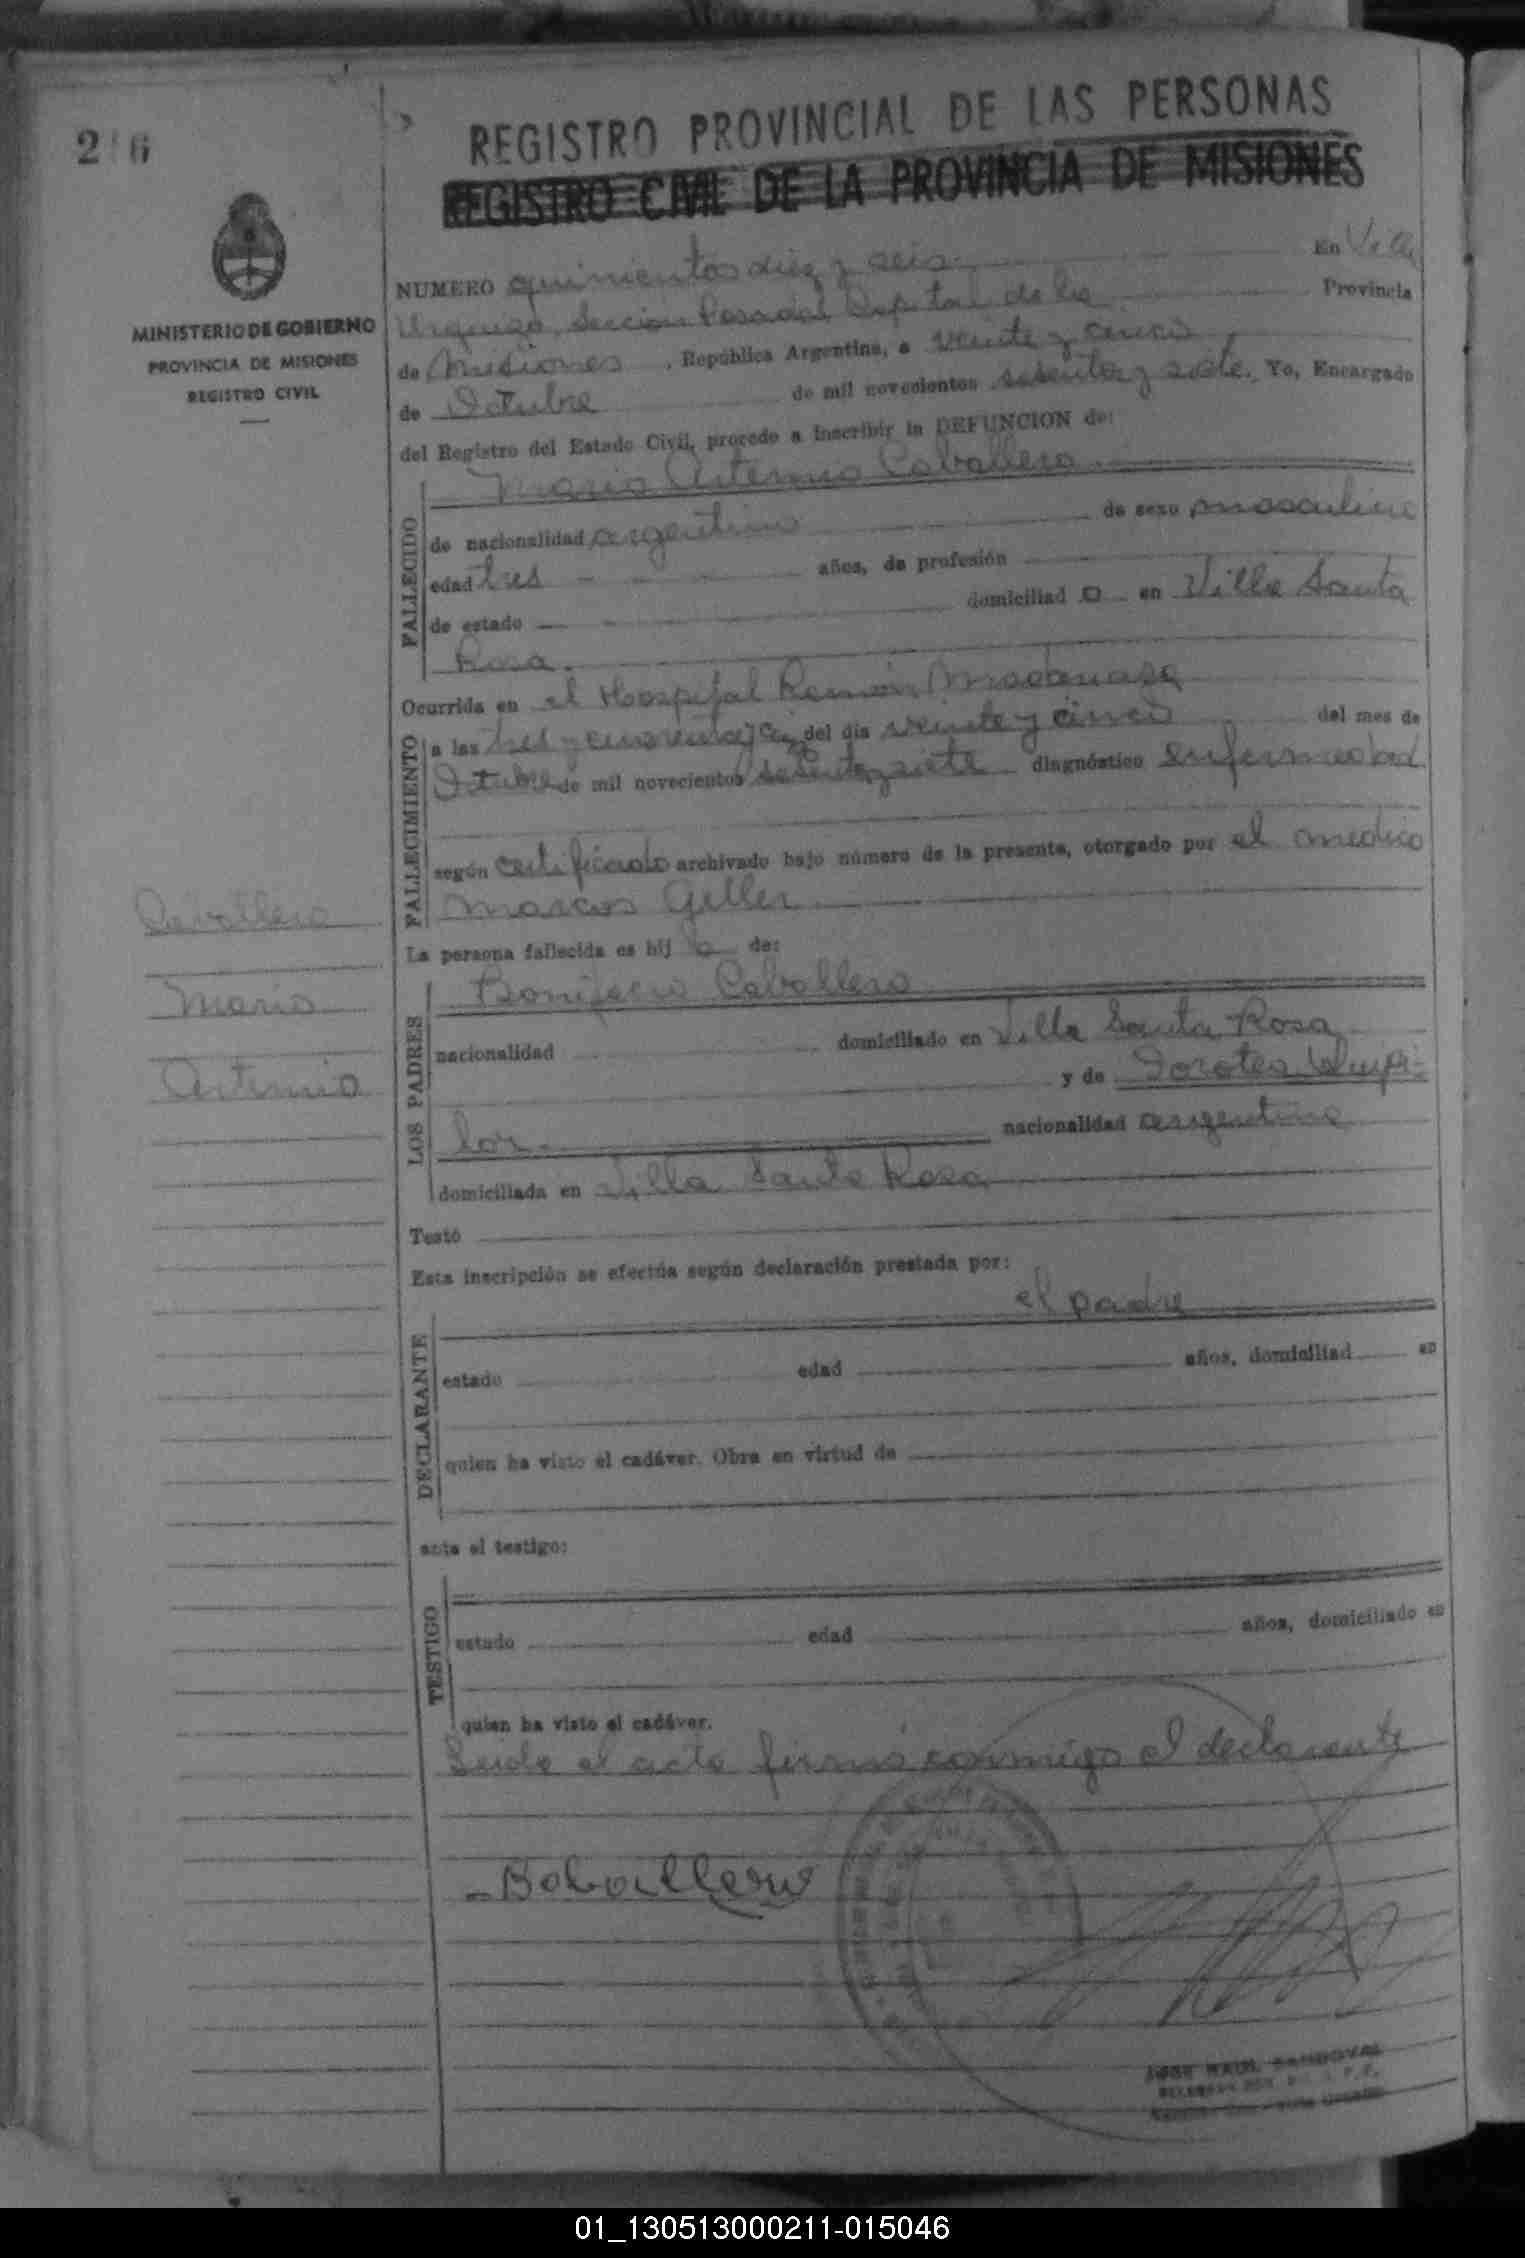 REGISTRO PROVINCIAL DE LAS PERSONAS
REGISTRO CIVIL DE LA PROVINCIA DE MISIONES
2 6
MINISTERIO DE GOBIERNO
PROVINCIA DE MISIONES
REGISTRO CIVIL
NUMERO quinientos diez y seis En Villa
Urquiza, Seccion Posadas Capital de la Provincia
de Misiones, República Argentina, a veinte y cinco
de Octubre de mil novecientos sesenta y siete. Yo, Encargado
del Registro del Estado Civil, procedo a inscribir la DEFUNCION de:
Mario Artemio Caballero
FALLECIDO
de nacionalidad argentino de sexo masculino
edad tres años, de profesión
de estado domiciliad o en Villa Santa
Rosa.
Ocurrida en el Hospital Ramón Madariaga
FALLECIMIENTO
a las tres y cuarenta y del día veinte y cinco del mes de
Octubre de mil novecientos sesenta y siete diagnóstico enfermedad
según certificado archivado bajo número de la presente, otorgado por el medico
Marcos Geller
La persona fallecida es hij o de:
LOS PADRES
Bonifacio Caballero
nacionalidad domiciliado en Villa Santa Rosa
y de Dorotea
nacionalidad argentina
domiciliada en Villa Santa Rosa
Testó
Esta inscripción se efectúa según declaración prestada por:
el padre
DECLARANTE
estado edad años, domiciliad en
quien ha visto el cadáver. Obra en virtud de
ante el testigo:
TESTIGO
estado edad años, domiciliado en
quien ha visto el cadáver.
Leida el acta firmó conmigo el declarante
Caballero
Mario
Artemio
JOSE RAUL SANDOVAL
01_130513000211-015046